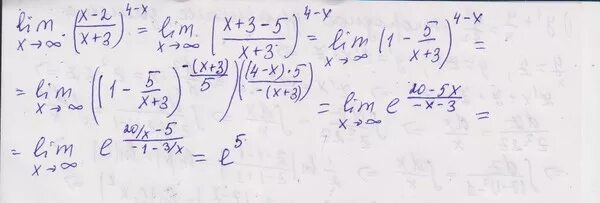 lim (x-2 / x+3)^(4-x) = lim (x+3-5 / x+3)^(4-x) = lim (1 - 5/(x+3))^(4-x) =
x→∞ x→∞ x→∞
= lim ((1 - 5/(x+3))^(-(x+3)/5))^((4-x)·5/-(x+3)) = lim e^((20-5x)/(-x-3)) =
x→∞ x→∞
= lim e^((20/x-5)/(-1-3/x)) = e^5
x→∞